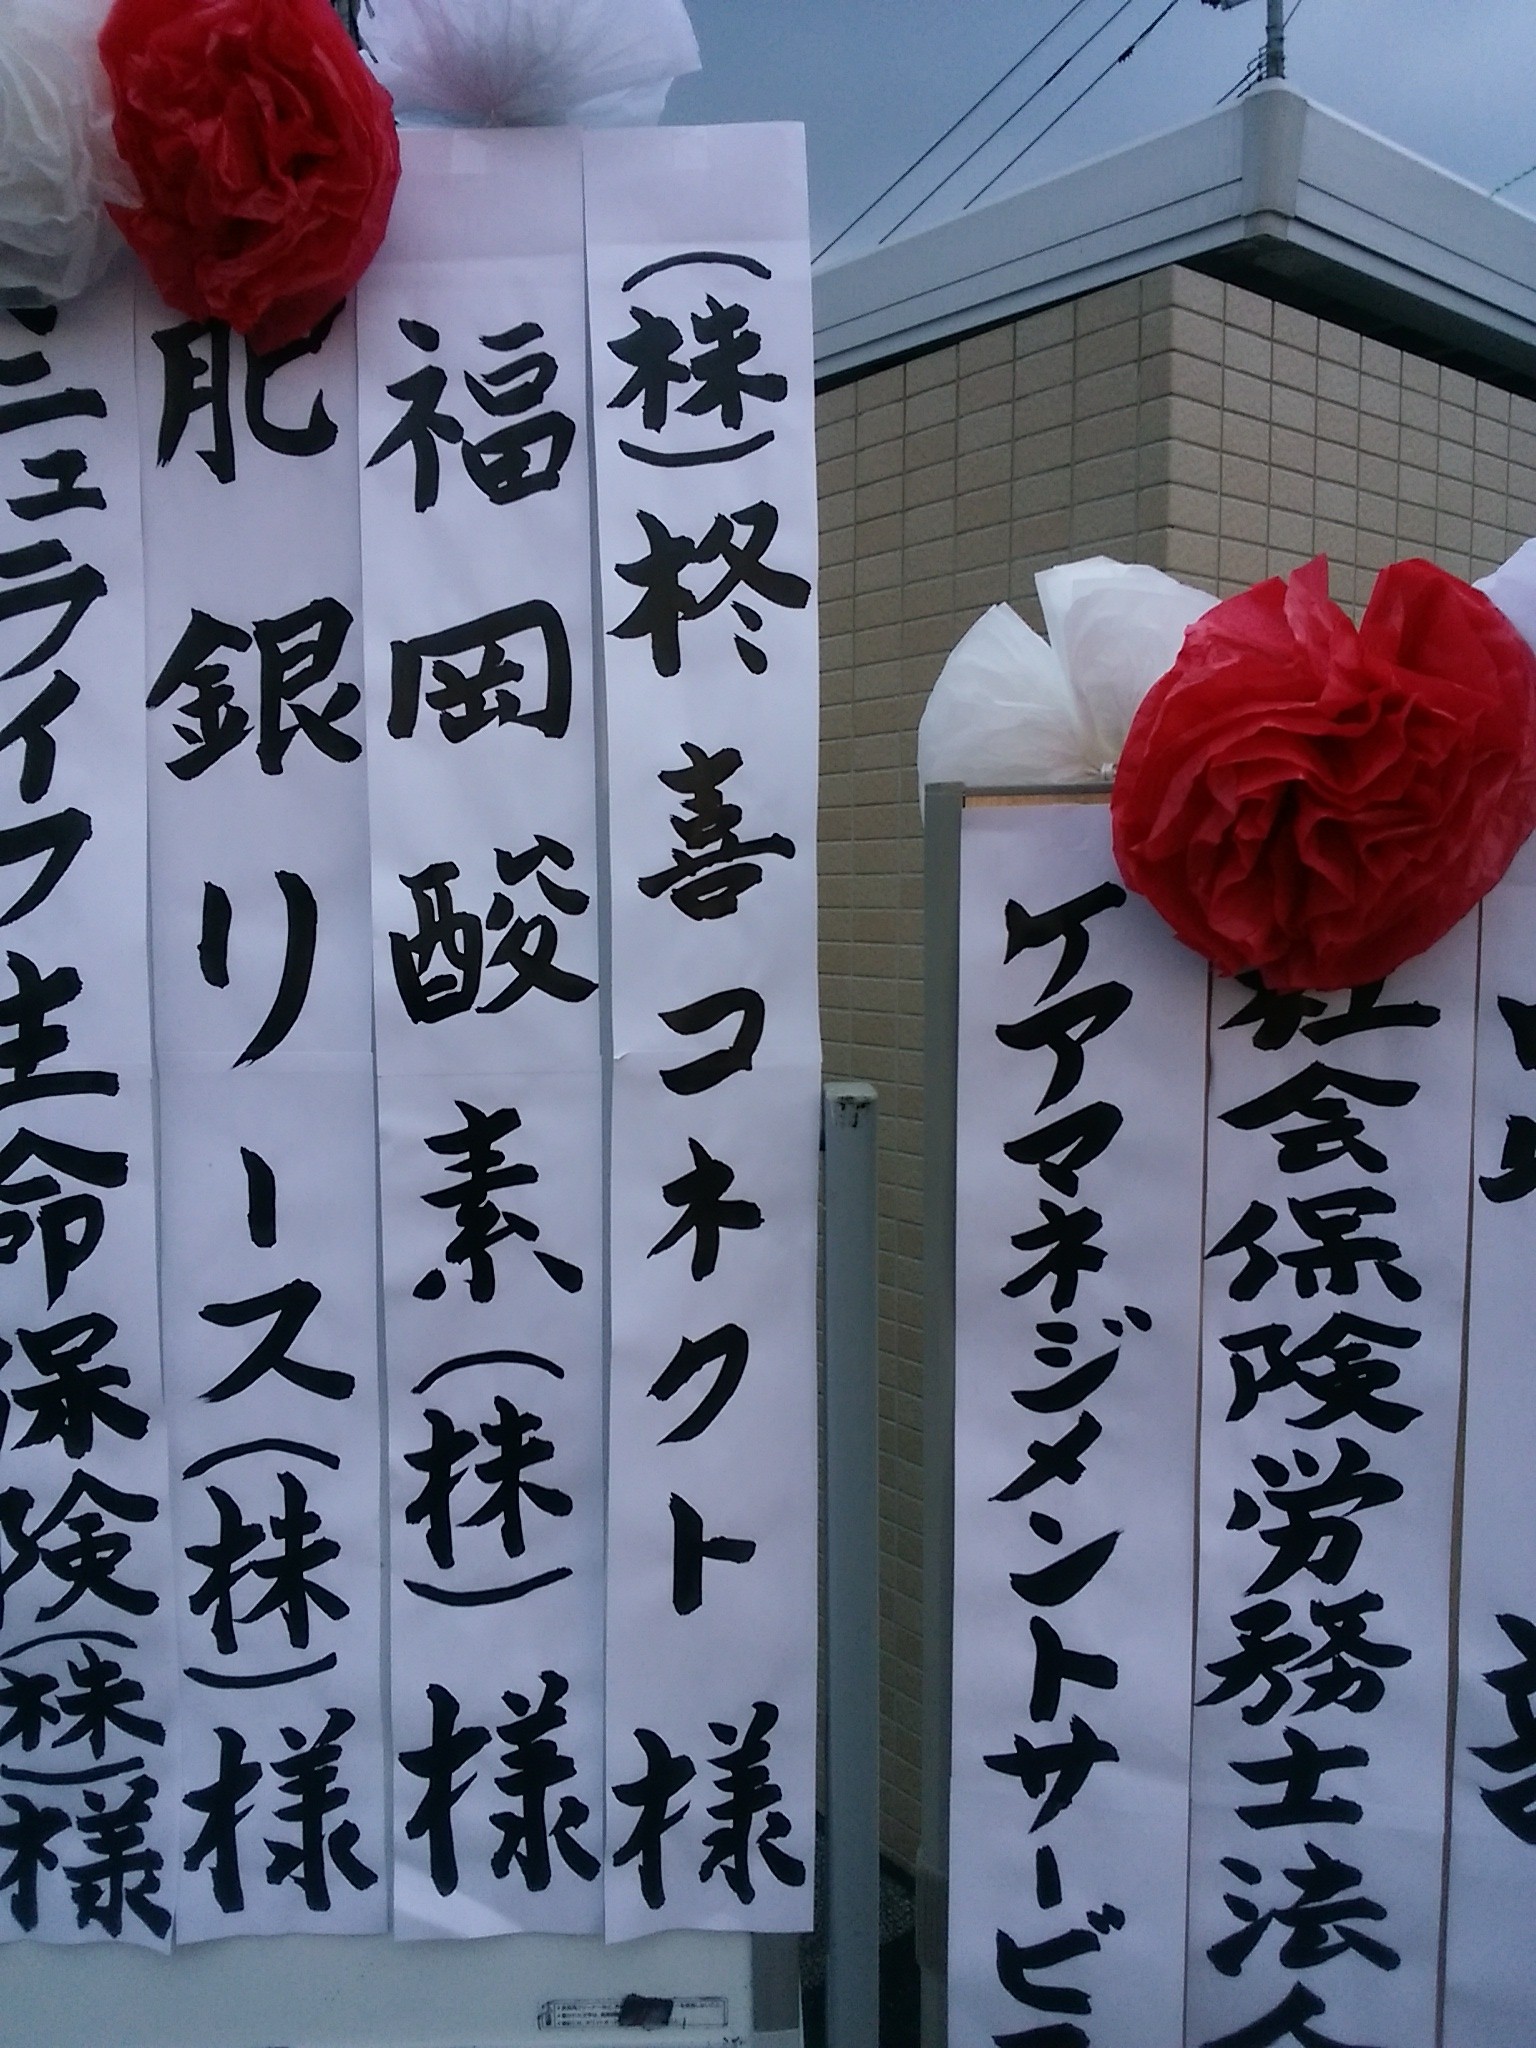 社会保険労務士法人
ケアマネジメントサービス
(株)柊喜コネクト様
福岡酸素(株)様
肥銀リース(株)様
ニュライフ生命保険(株)様